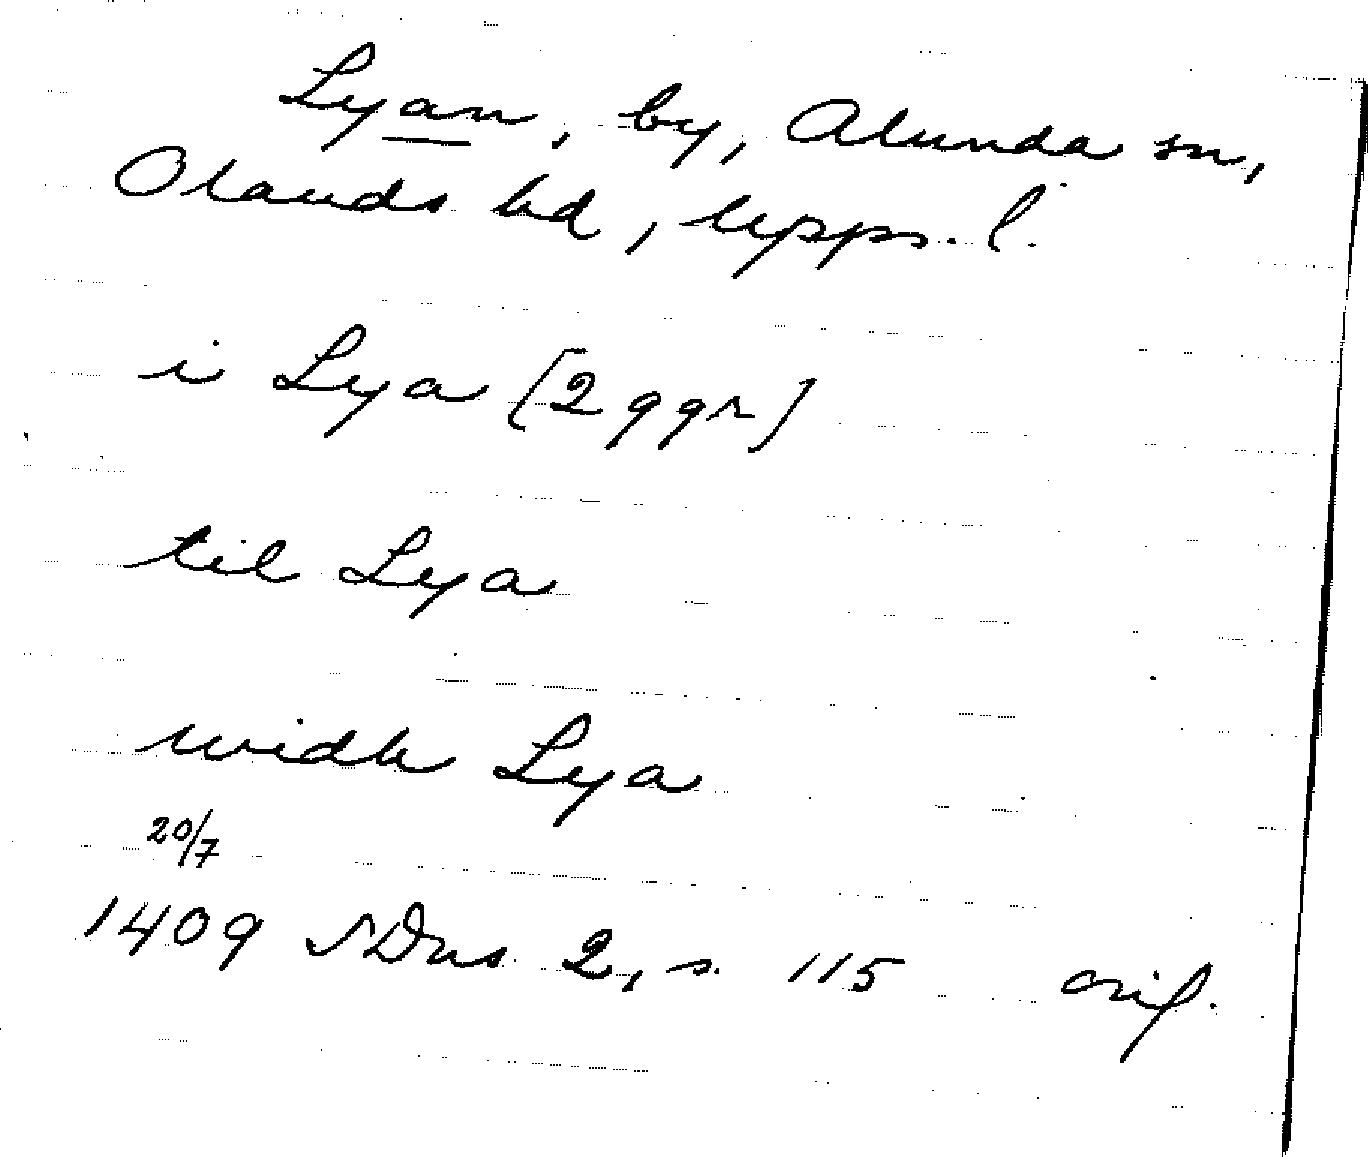 Lyan, by, Alunda sn,
Olands hd, Upps. l.
i Lya [2 ggr]
til Lya
widh Lya
20/7
1409 SDns 2, s. 115 orig.